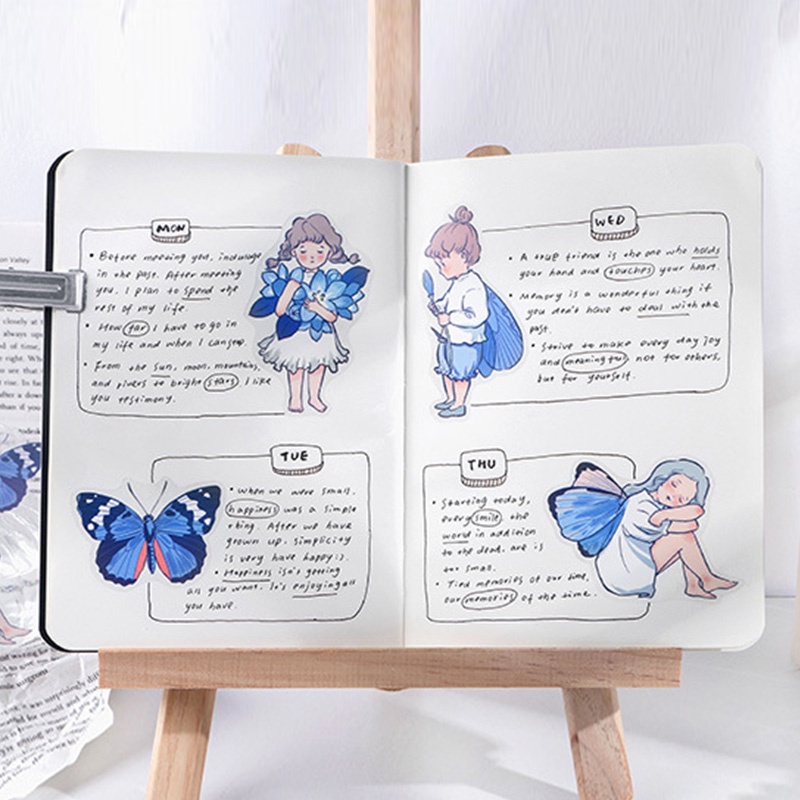 MON
• Before meeting you, indulage
in the past. After meeting
you, I plan to spend the
rest of my life.
• How far I have to go in
my life and when I can stop.
• From the sun, moon, mountains,
and rivers to bright stars, I like
you testimony.
TUE
• When we were small,
happiness was a simple
thing. After we have
grown up. Simplicity
is very have happy :).
• Happiness isn't getting
all you want. It's enjoying all
you have.
WED
• A true friend is the one who holds
your hand and touches your heart.
• Memory is a wonderful thing if
you don't have to deal with the
past.
• Strive to make every day joy
and meaningful not for others,
but for yourself.
THU
• Starting today,
every smile the
world in addition
to the dead, are is
too small.
• Tied memories of our time,
our memories of the time.
Valley
closely at
always up
right. Wh